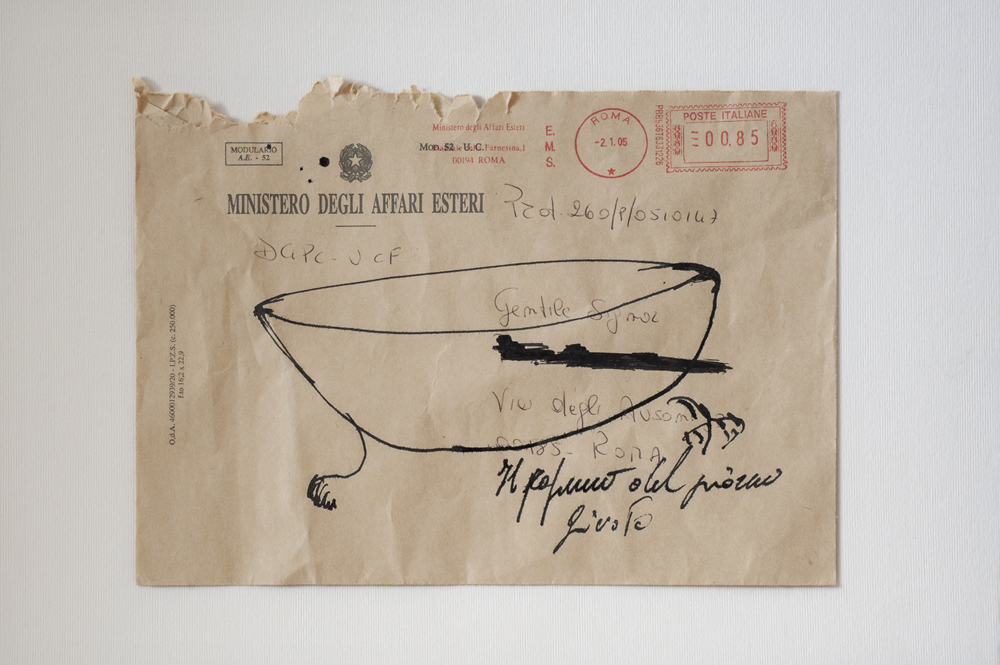 MODULARIO
A.E. - 52
Mod. 52 - U.C.
MINISTERO DEGLI AFFARI ESTERI
Ministero degli Affari Esteri
Farnesina,1
00194 ROMA
E.
M.
S.
ROMA
-2.1.05
POSTE ITALIANE
00.85
Prot. 260/P/0510147
DGPC - UCF
Gentile Signor
Via degli
00185 - ROMA
Il del
O.d.A. 4600012939/20 - I.P.Z.S. (c. 250.000)
F.to 16,2 x 22,9